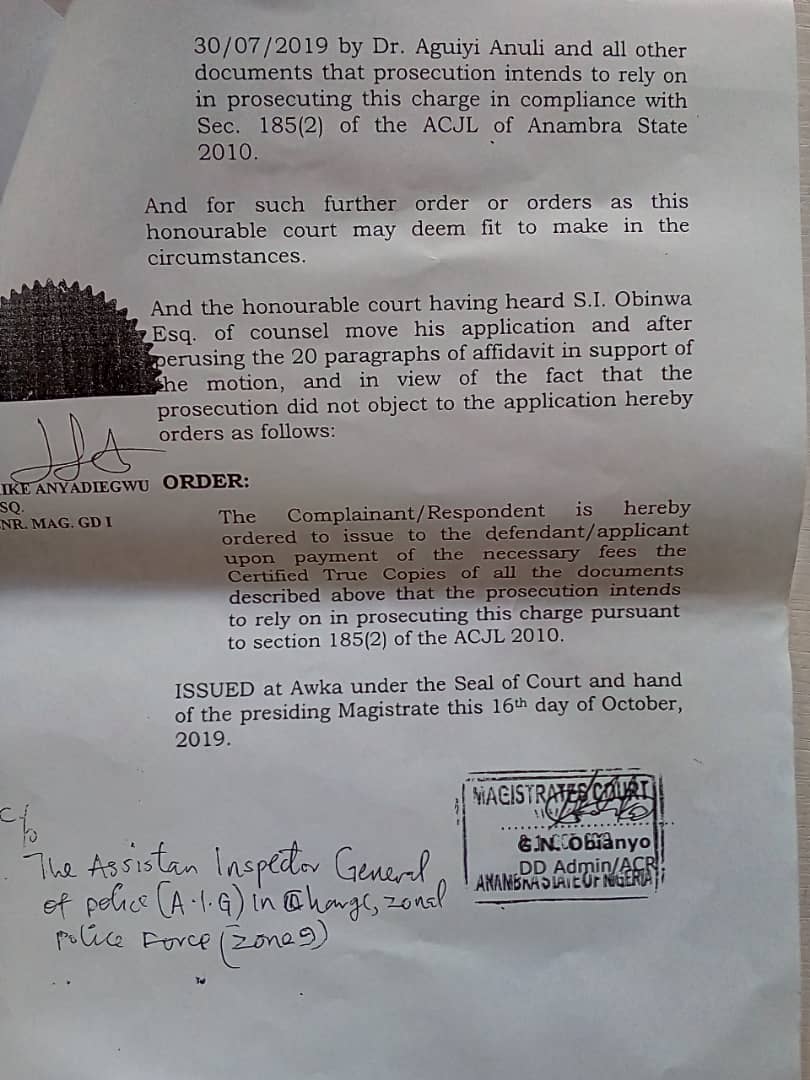 30/07/2019 by Dr. Aguiyi Anuli and all other
documents that prosecution intends to rely on
in prosecuting this charge in compliance with
Sec. 185(2) of the ACJL of Anambra State
2010.
And for such further order or orders as this
honourable court may deem fit to make in the
circumstances.
And the honourable court having heard S.I. Obinwa
Esq. of counsel move his application and after
perusing the 20 paragraphs of affidavit in support of
the motion, and in view of the fact that the
prosecution did not object to the application hereby
orders as follows:
IKE ANYADIEGWU
SQ.
NR. MAG. GD I
ORDER:
The Complainant/Respondent is hereby
ordered to issue to the defendant/applicant
upon payment of the necessary fees the
Certified True Copies of all the documents
described above that the prosecution intends
to rely on in prosecuting this charge pursuant
to section 185(2) of the ACJL 2010.
ISSUED at Awka under the Seal of Court and hand
of the presiding Magistrate this 16th day of October,
2019.
MAGISTRATES COURT
Obianyo
DD Admin/ACR
ANAMBRA STATE OF NIGERIA
c/o
The Assistan Inspector General
of police (A.I.G) in Charge, zonal
police Force (zone 9)